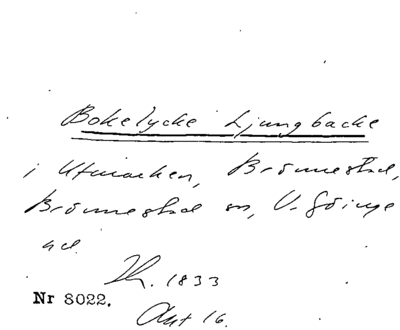 Bokelycke Ljungbacke
i Utmarken, Brönnestad,
Brönnestad sn, V. Göinge
hd.
Lh. 1833
Nr 8022.
Akt 16.